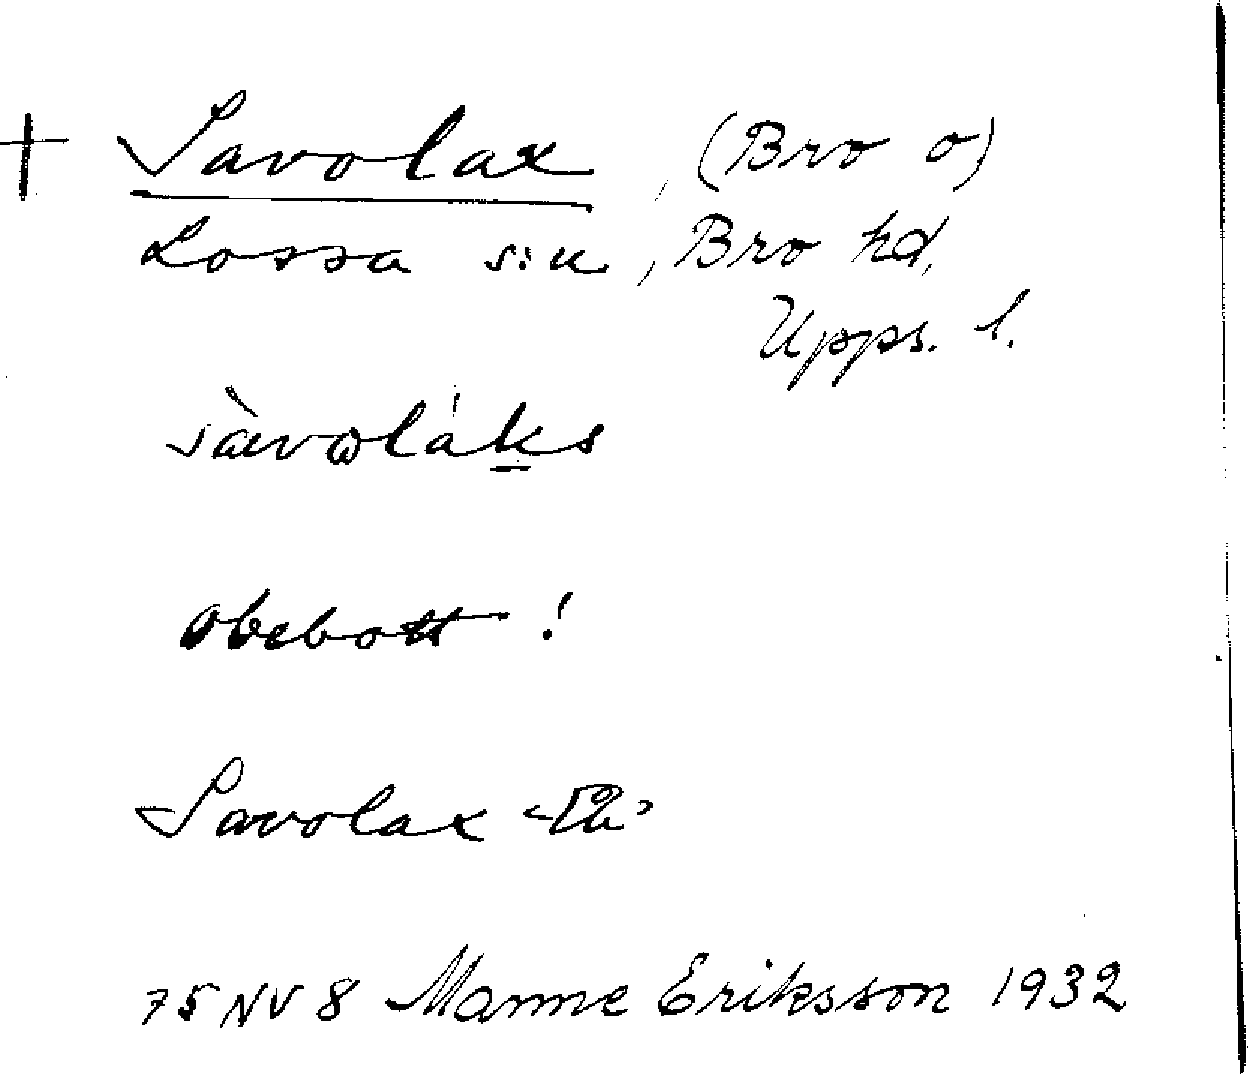 + Savolax, (Bro o)
Lossa sn, Bro hd,
Upps. l.
sàvωláks
obebott!
Savolax
75 NV 8 Manne Eriksson 1932